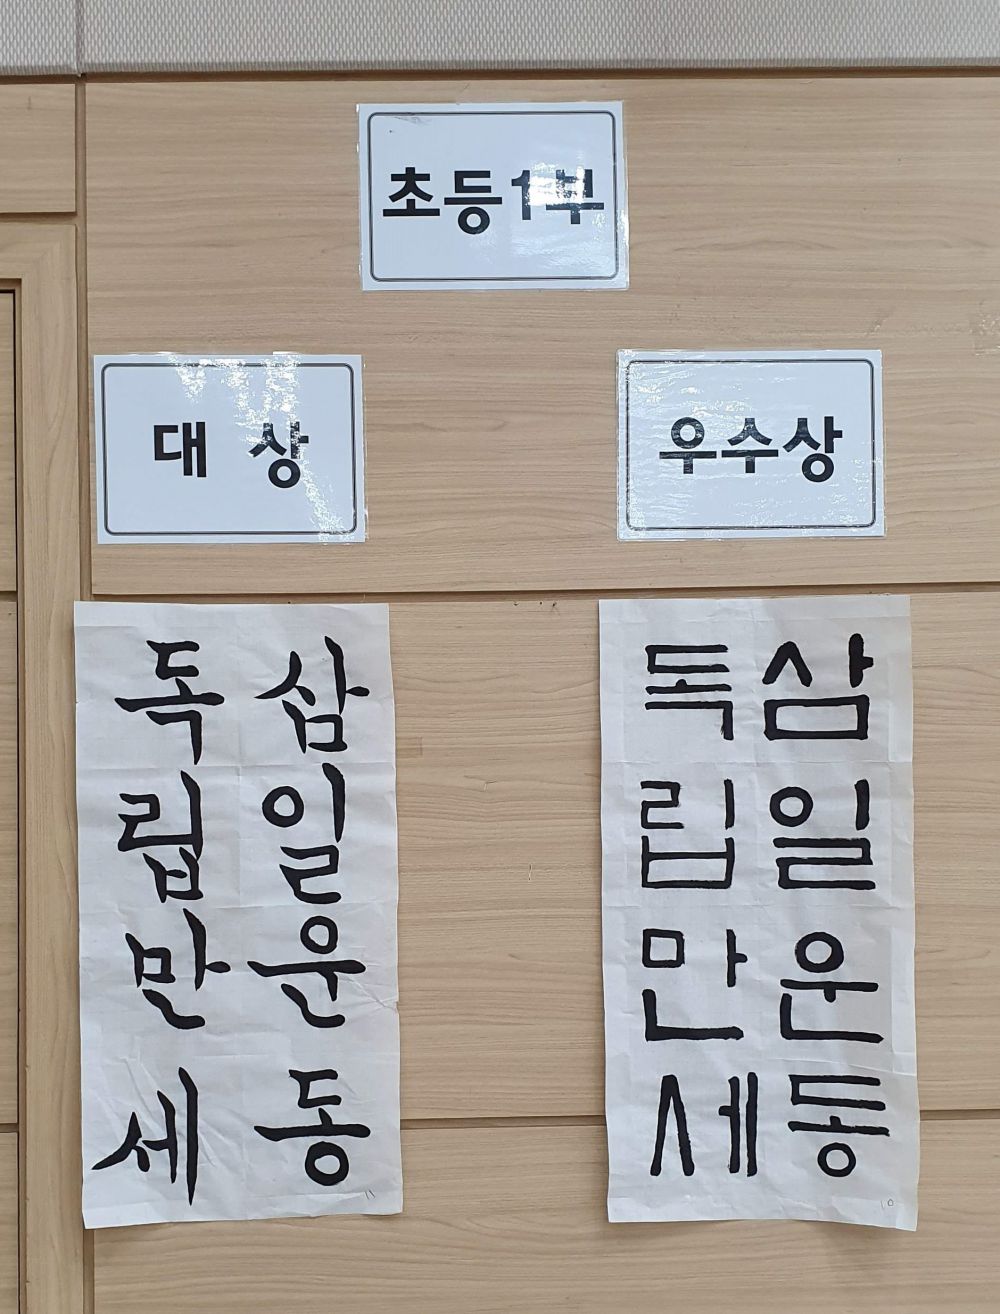 초등1부
대 상
우수상
삼일운동
독립만세
11
삼일운동
독립만세
10